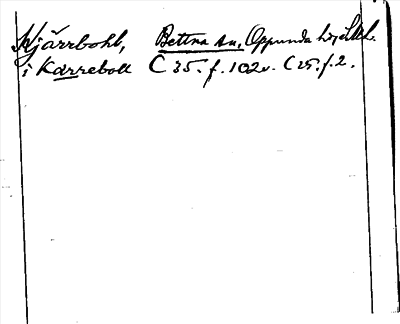 Kjärrbohl, Bettna sn, Oppunda hd, Södl.
i Karreboll C 35. f. 102v. C 25. f. 2.